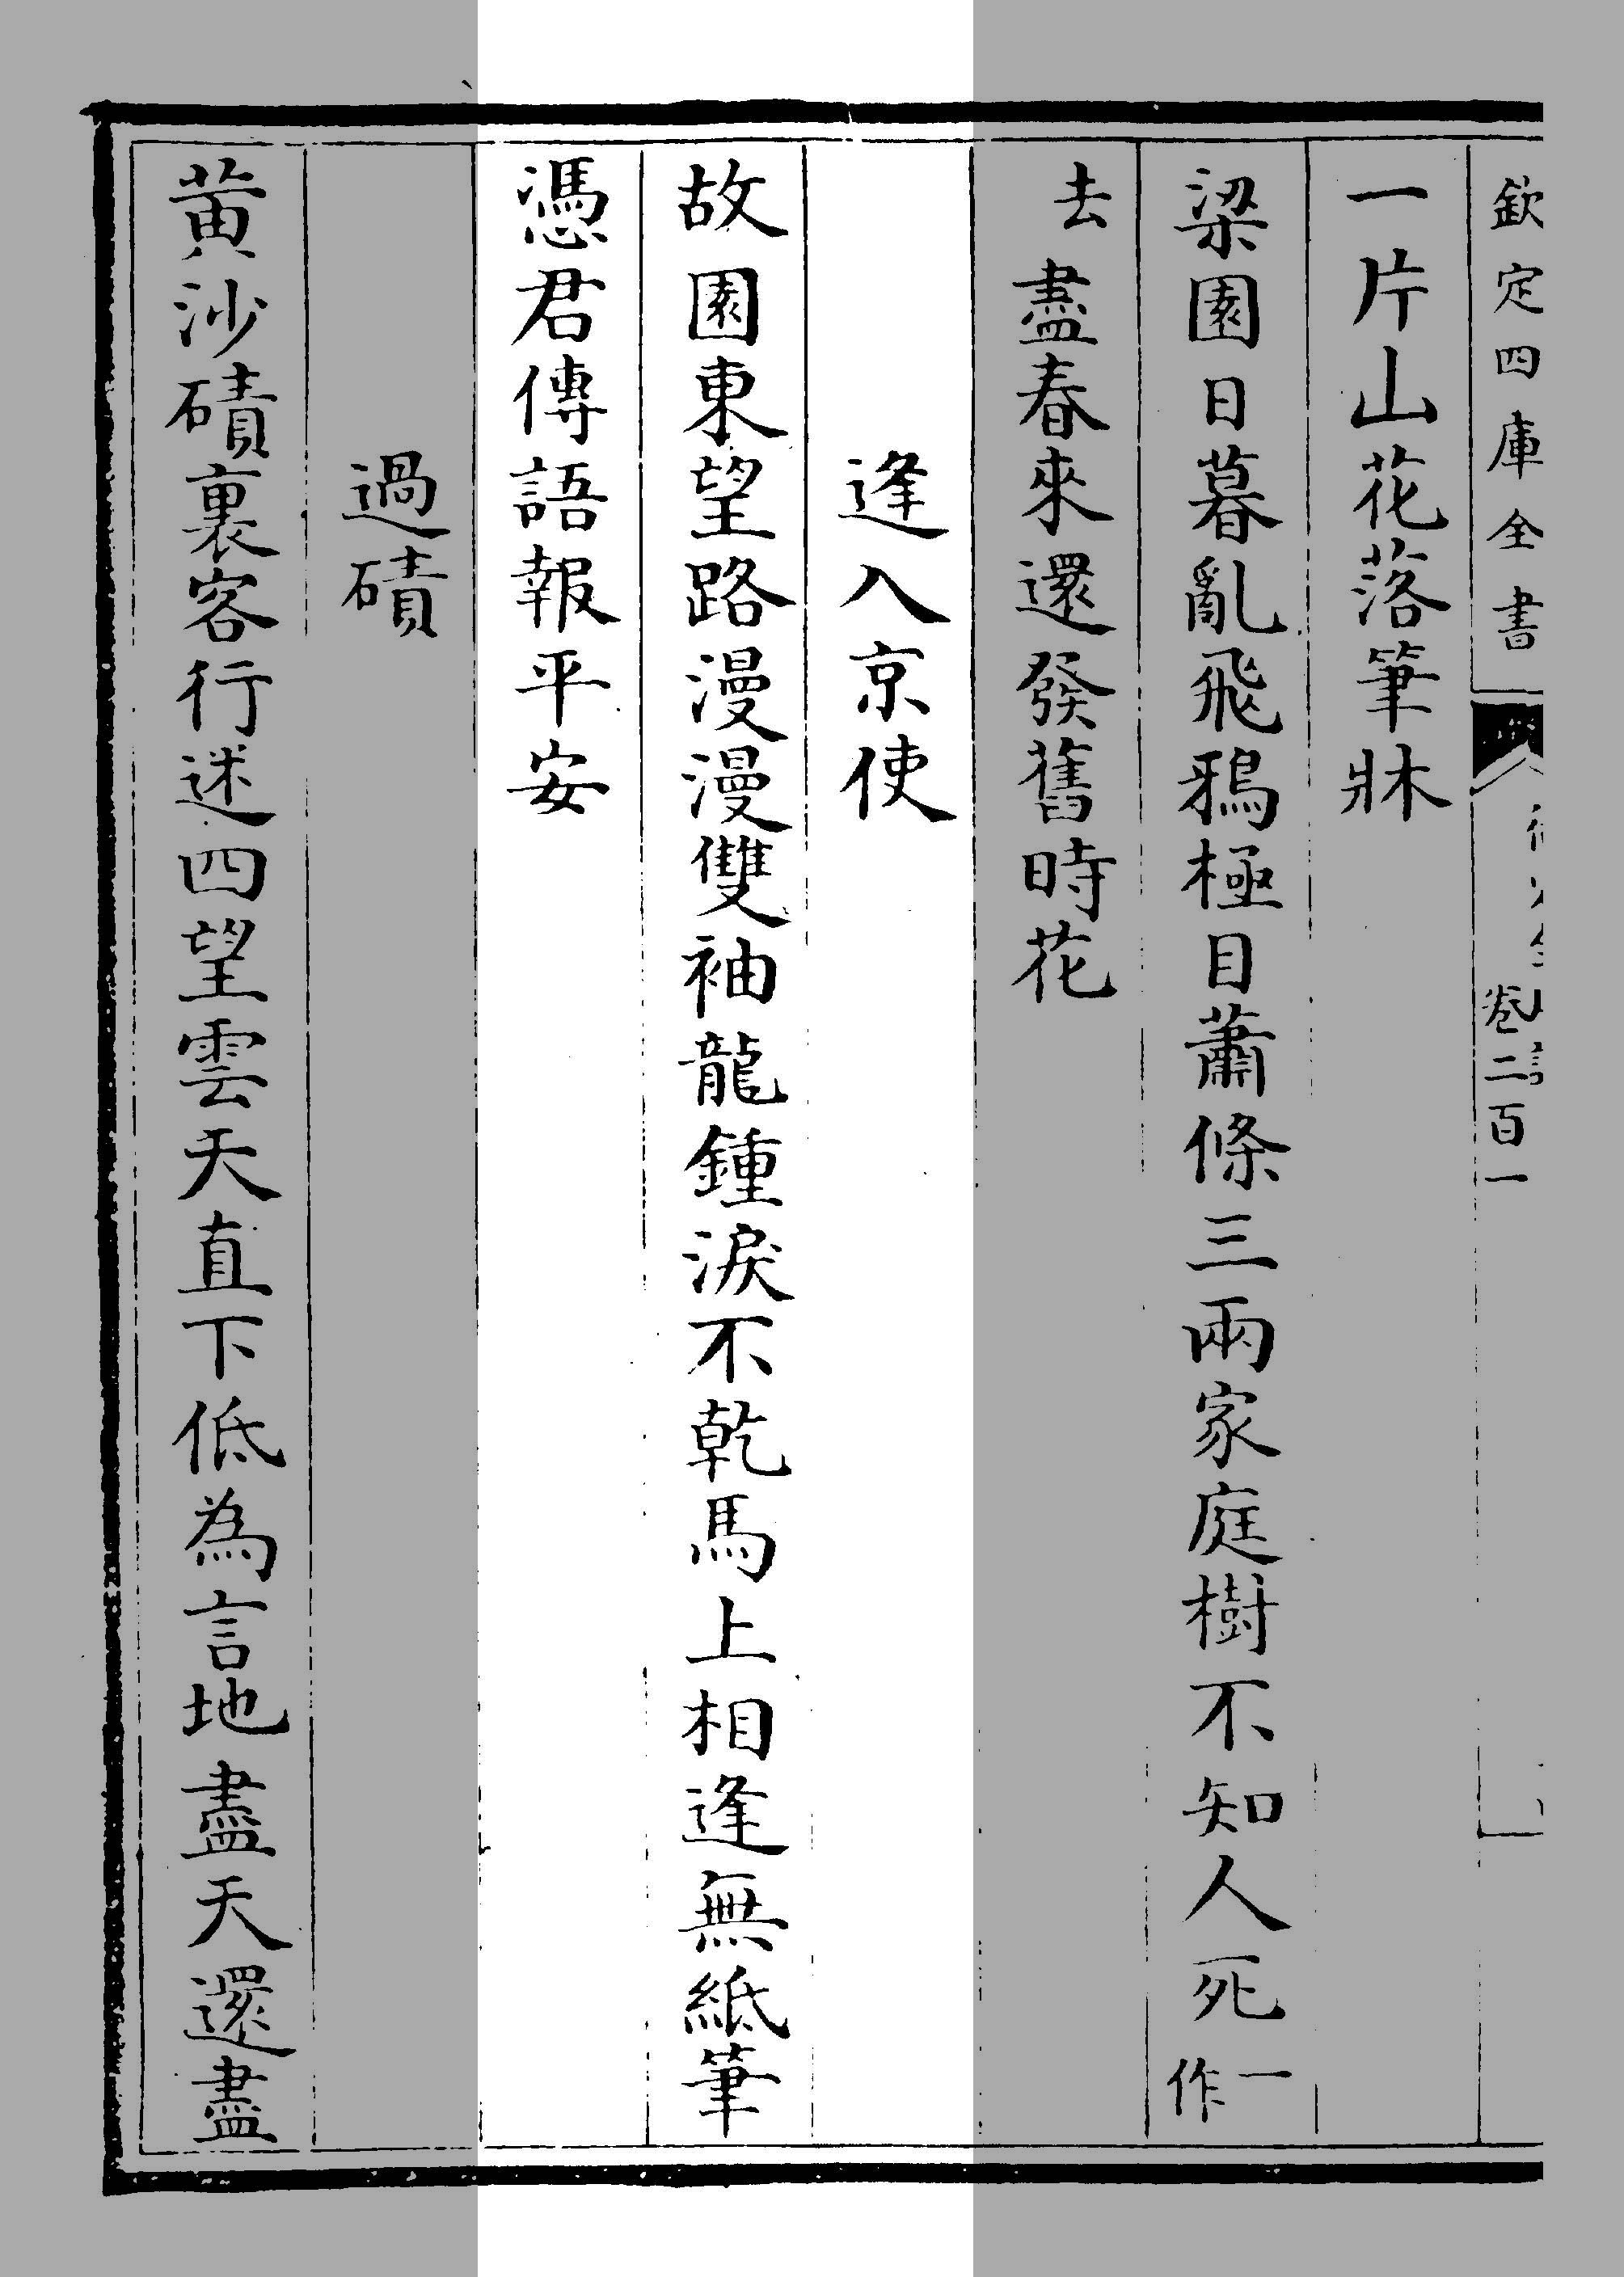 欽定四庫全書
卷二百一
一片山花落筆牀
梁園日暮亂飛鴉極目蕭條三兩家庭樹不知人死一作
去盡春來還發舊時花
逢入京使
故園東望路漫漫雙袖龍鍾淚不乾馬上相逢無紙筆
憑君傳語報平安
過磧
黄沙磧裏客行迷四望雲天直下低為言地盡天還盡